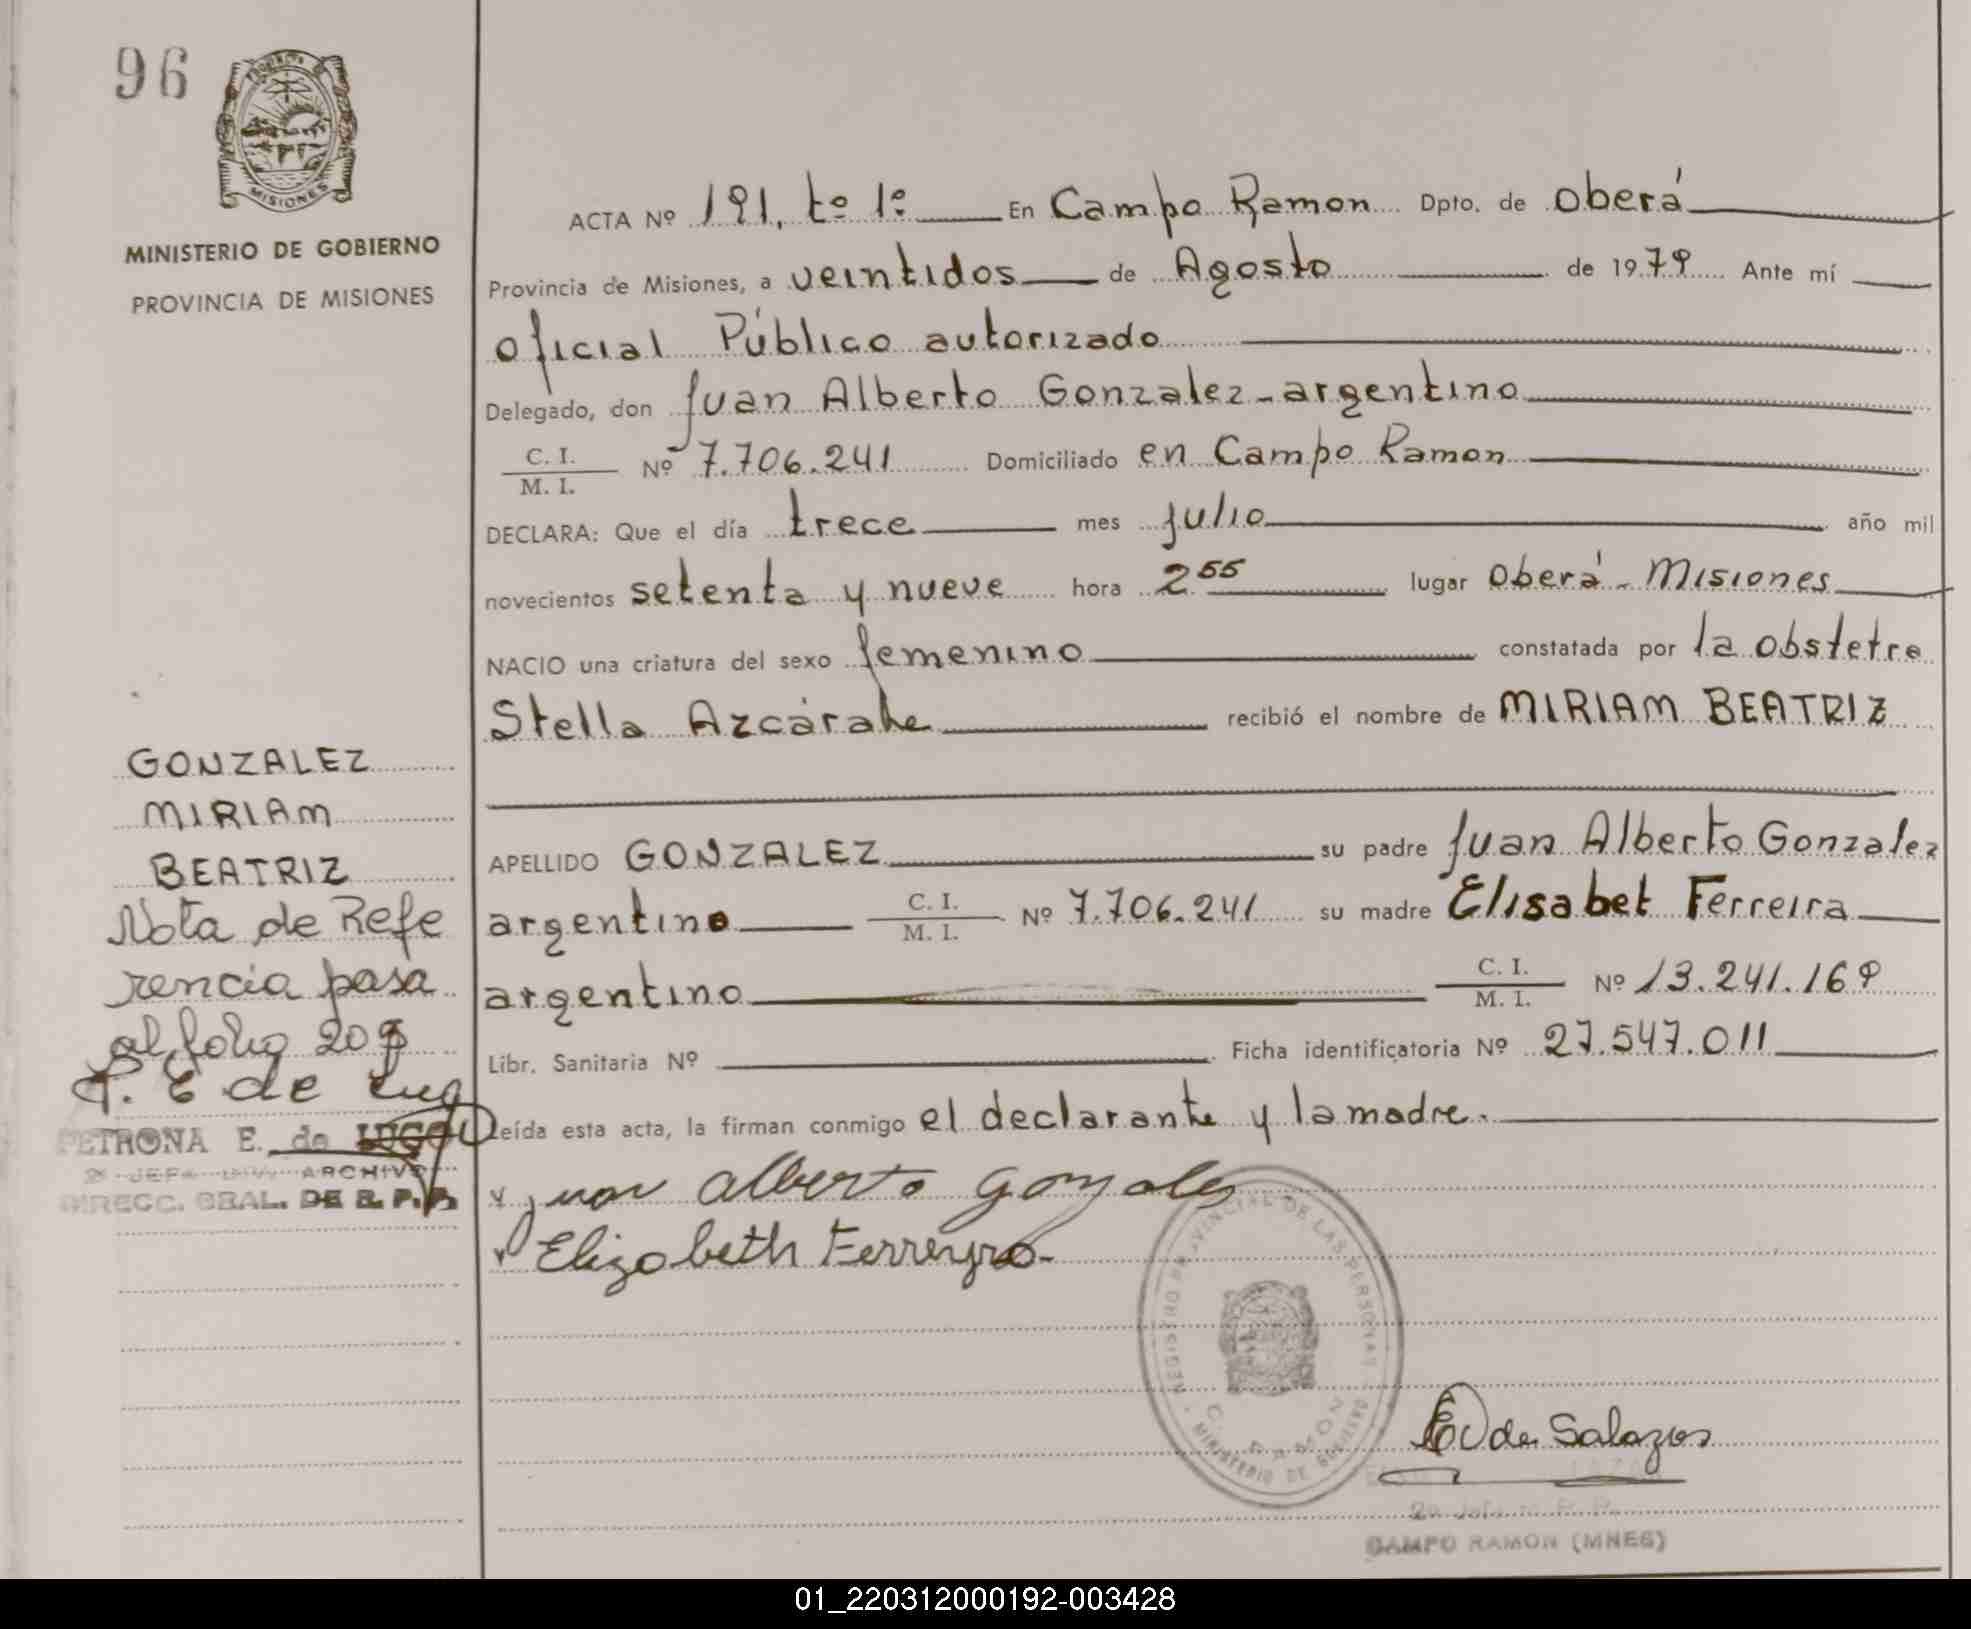 96
PROVINCIA DE
MISIONES
MINISTERIO DE GOBIERNO
PROVINCIA DE MISIONES
ACTA Nº 191, tº 1º En Campo Ramon Dpto. de Oberá
Provincia de Misiones, a veintidos de Agosto de 1979 Ante mí
oficial Público autorizado
Delegado, don Juan Alberto Gonzalez - argentino
C. I.
M. I. Nº 7.706.241 Domiciliado en Campo Ramon
DECLARA: Que el día trece mes julio año mil
novecientos setenta y nueve hora 2 55 lugar Oberá - Misiones
NACIO una criatura del sexo femenino constatada por la obstetra
Stella Azcárate recibió el nombre de MIRIAM BEATRIZ
APELLIDO GONZALEZ su padre Juan Alberto Gonzalez
argentino C. I.
M. I. Nº 7.706.241 su madre Elisabet Ferreira
argentino C. I.
M. I. Nº 13.241.169
Libr. Sanitaria Nº Ficha identificatoria Nº 27.547.011
Leída esta acta, la firman conmigo el declarante y la madre.
Juan Alberto Gonzalez
Elizabeth Ferreyra
GONZALEZ
MIRIAM
BEATRIZ
Nota de Refe
rencia pasa
al folio 209
P. E de Lugo
PETRONA E. de LUGO
2º JEFA DIV. ARCHIVO
DIRECC. GRAL. DE R. P. P.
REGISTRO PROVINCIAL DE LAS PERSONAS
C. RAMON
MINISTERIO DE GOBIERNO
E V de Salazar
2a. Jefa R. P.
CAMPO RAMON (MNES)
01_220312000192-003428